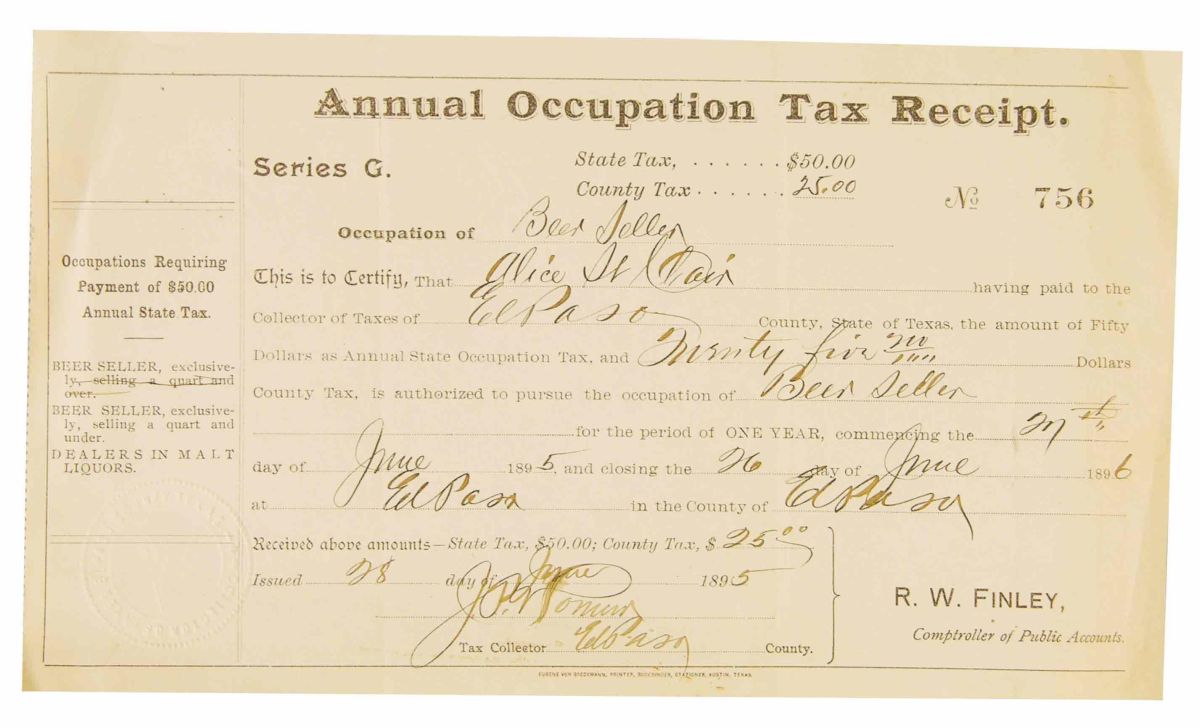 Annual Occupation Tax Receipt.
Series G.
State Tax, . . . . . . $50.00
County Tax . . . . . . 25.00
No 756
Occupation of Beer Seller
This is to Certify, That Alice St Clair having paid to the
Collector of Taxes of El Paso County, State of Texas, the amount of Fifty
Dollars as Annual State Occupation Tax, and Twenty five no/100 Dollars
County Tax, is authorized to pursue the occupation of Beer Seller
for the period of ONE YEAR, commencing the 27th
day of June 1895, and closing the 26 day of June 1896
at El Paso in the County of El Paso
Received above amounts—State Tax, $50.00; County Tax, $ 25.00
Issued 28 day of June 1895
Tax Collector El Paso County.
R. W. FINLEY,
Comptroller of Public Accounts.
Occupations Requiring
Payment of $50.00
Annual State Tax.
BEER SELLER, exclusive-
ly, selling a quart and
over.
BEER SELLER, exclusive-
ly, selling a quart and
under.
DEALERS IN MALT
LIQUORS.
EUGENE VON BOECKMANN, PRINTER, BOOKBINDER, STATIONER, AUSTIN, TEXAS.